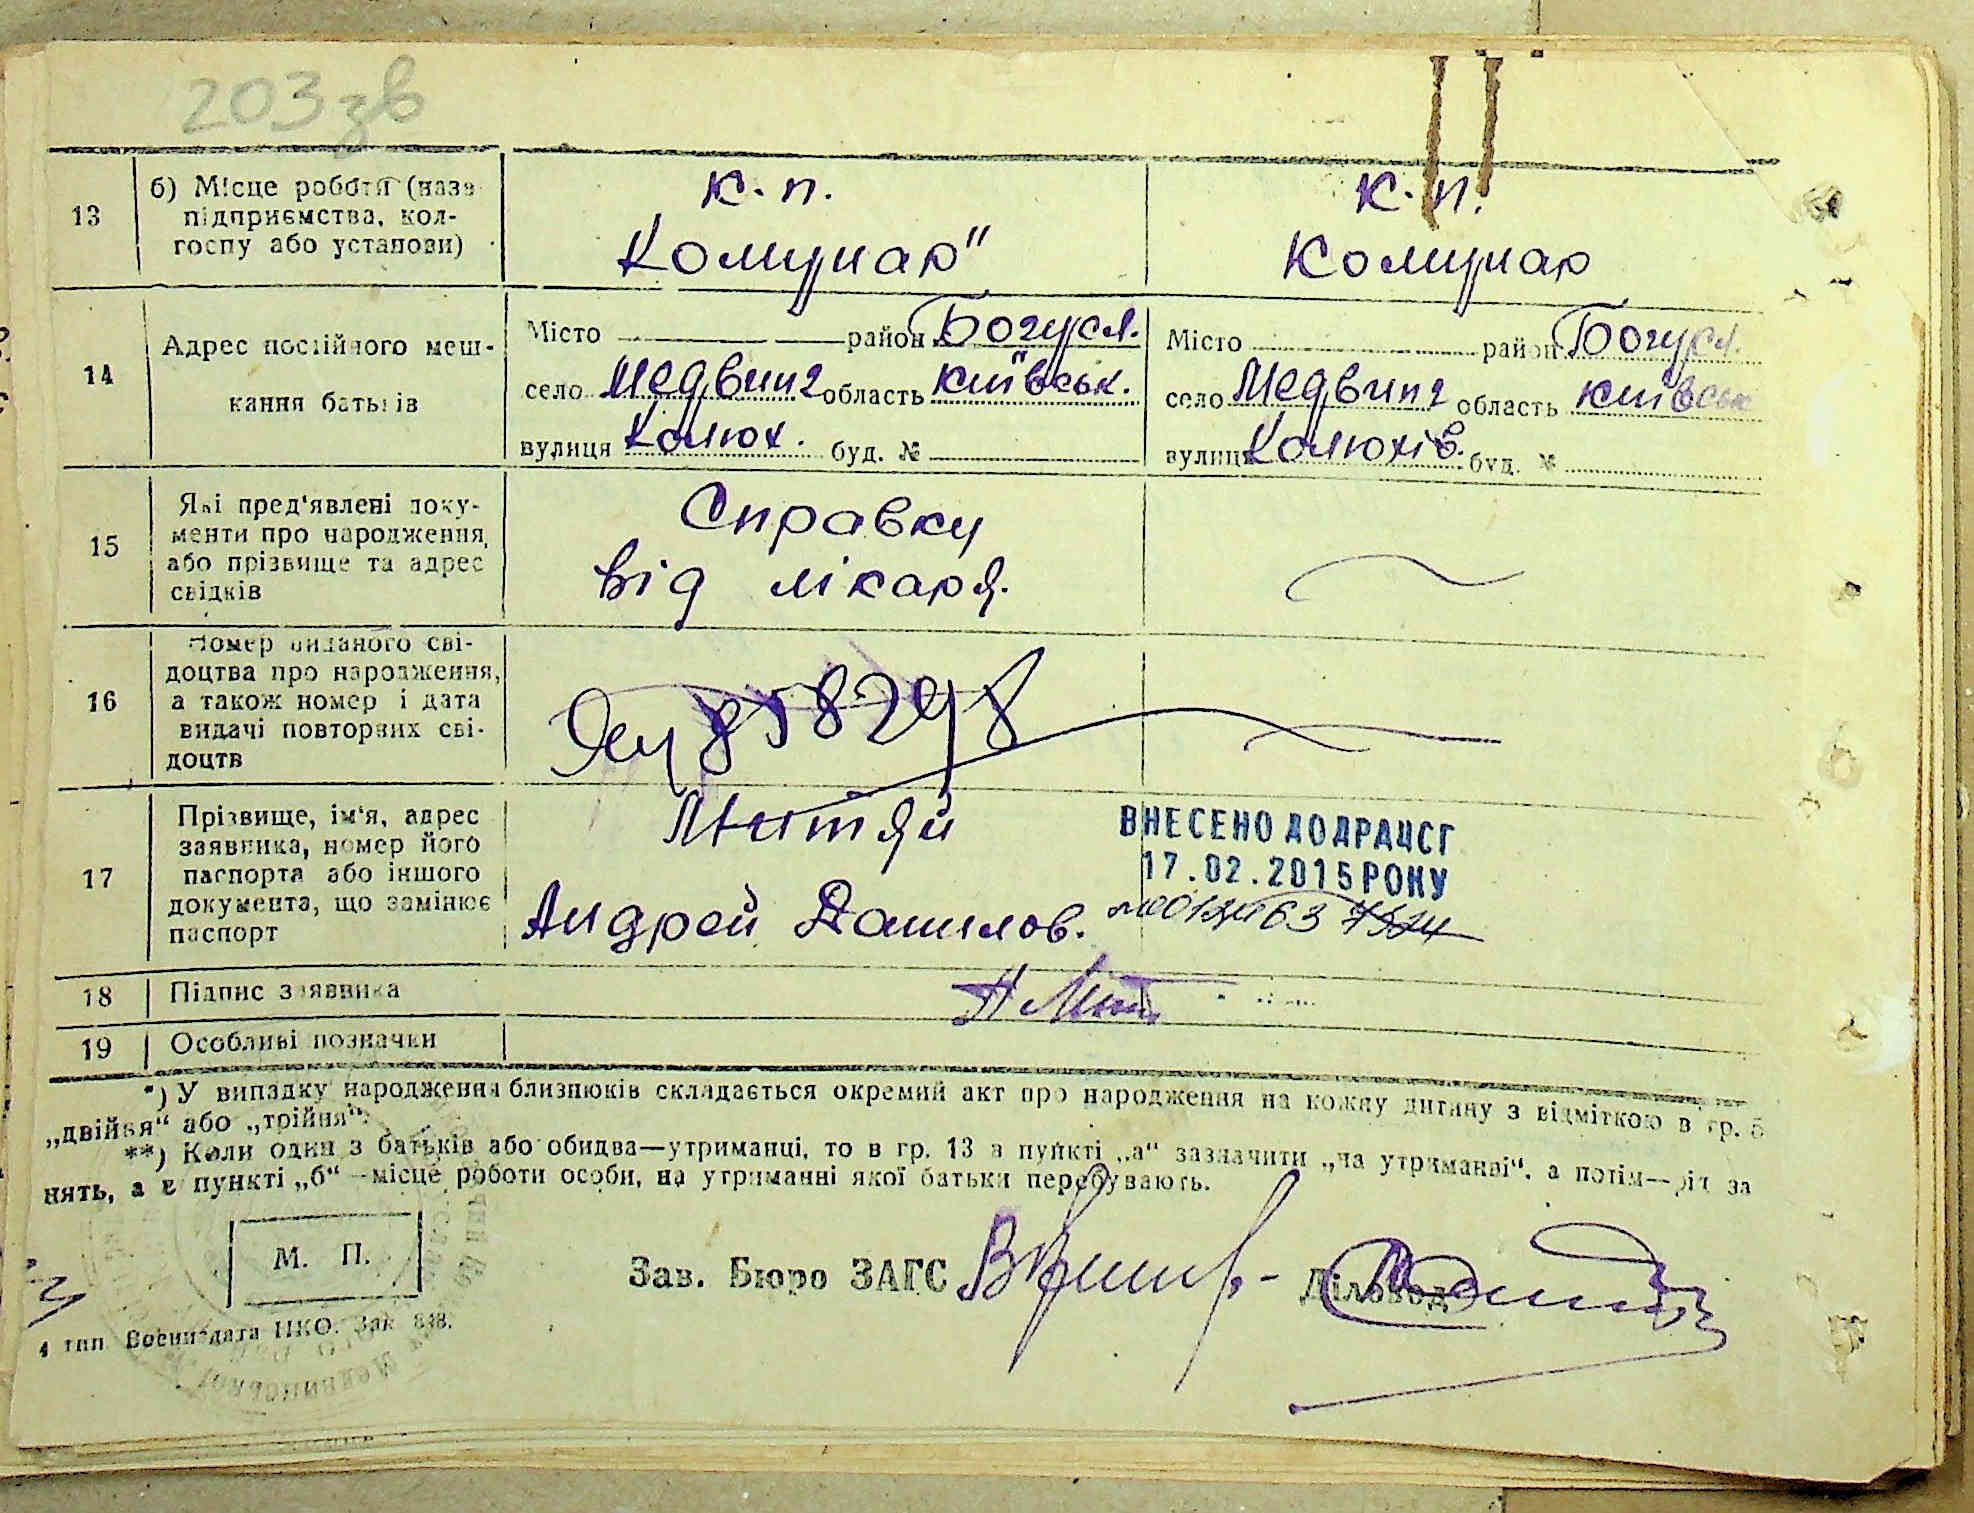 203 зв
13
б) Місце роботи (назв
підприємства, кол-
госпу або установи)
к. п.
Комунар"
к. п.
Комунар
14
Адрес постійного меш-
кання батьків
Місто район Богусл.
село Медвин область Київськ.
вулиця Колюх. буд. №
Місто район Богусл.
село Медвин область Київськ
вулиця Колюхів. буд. №
15
Які пред'явлені доку-
менти про народження,
або прізвище та адрес
свідків
Справку
від лікаря.
16
Номер виданого сві-
доцтва про народження,
а також номер і дата
видачі повторних сві-
доцтв
858298
17
Прізвище, ім'я, адрес
заявника, номер його
паспорта або іншого
документа, що замінює
паспорт
Митяй
Андрей Данилов.
ВНЕСЕНО ДО ДРАЦСГ
17.02.2015 РОКУ
18
Підпис заявника
19
Особливі позначки
*) У випадку народження близнюків складається окремий акт про народження на кожну дитину з відміткою в гр. 5
„двійня“ або „трійня“.
**) Коли один з батьків або обидва—утриманці, то в гр. 13 в пункті „а“ зазначити „на утриманні“, а потім—рід за
нять, а в пункті „б“—місце роботи особи, на утриманні якої батьки перебувають.
М. П.
Зав. Бюро ЗАГС
Діловод
4 тип. Воениздата НКО. Зак. 838.